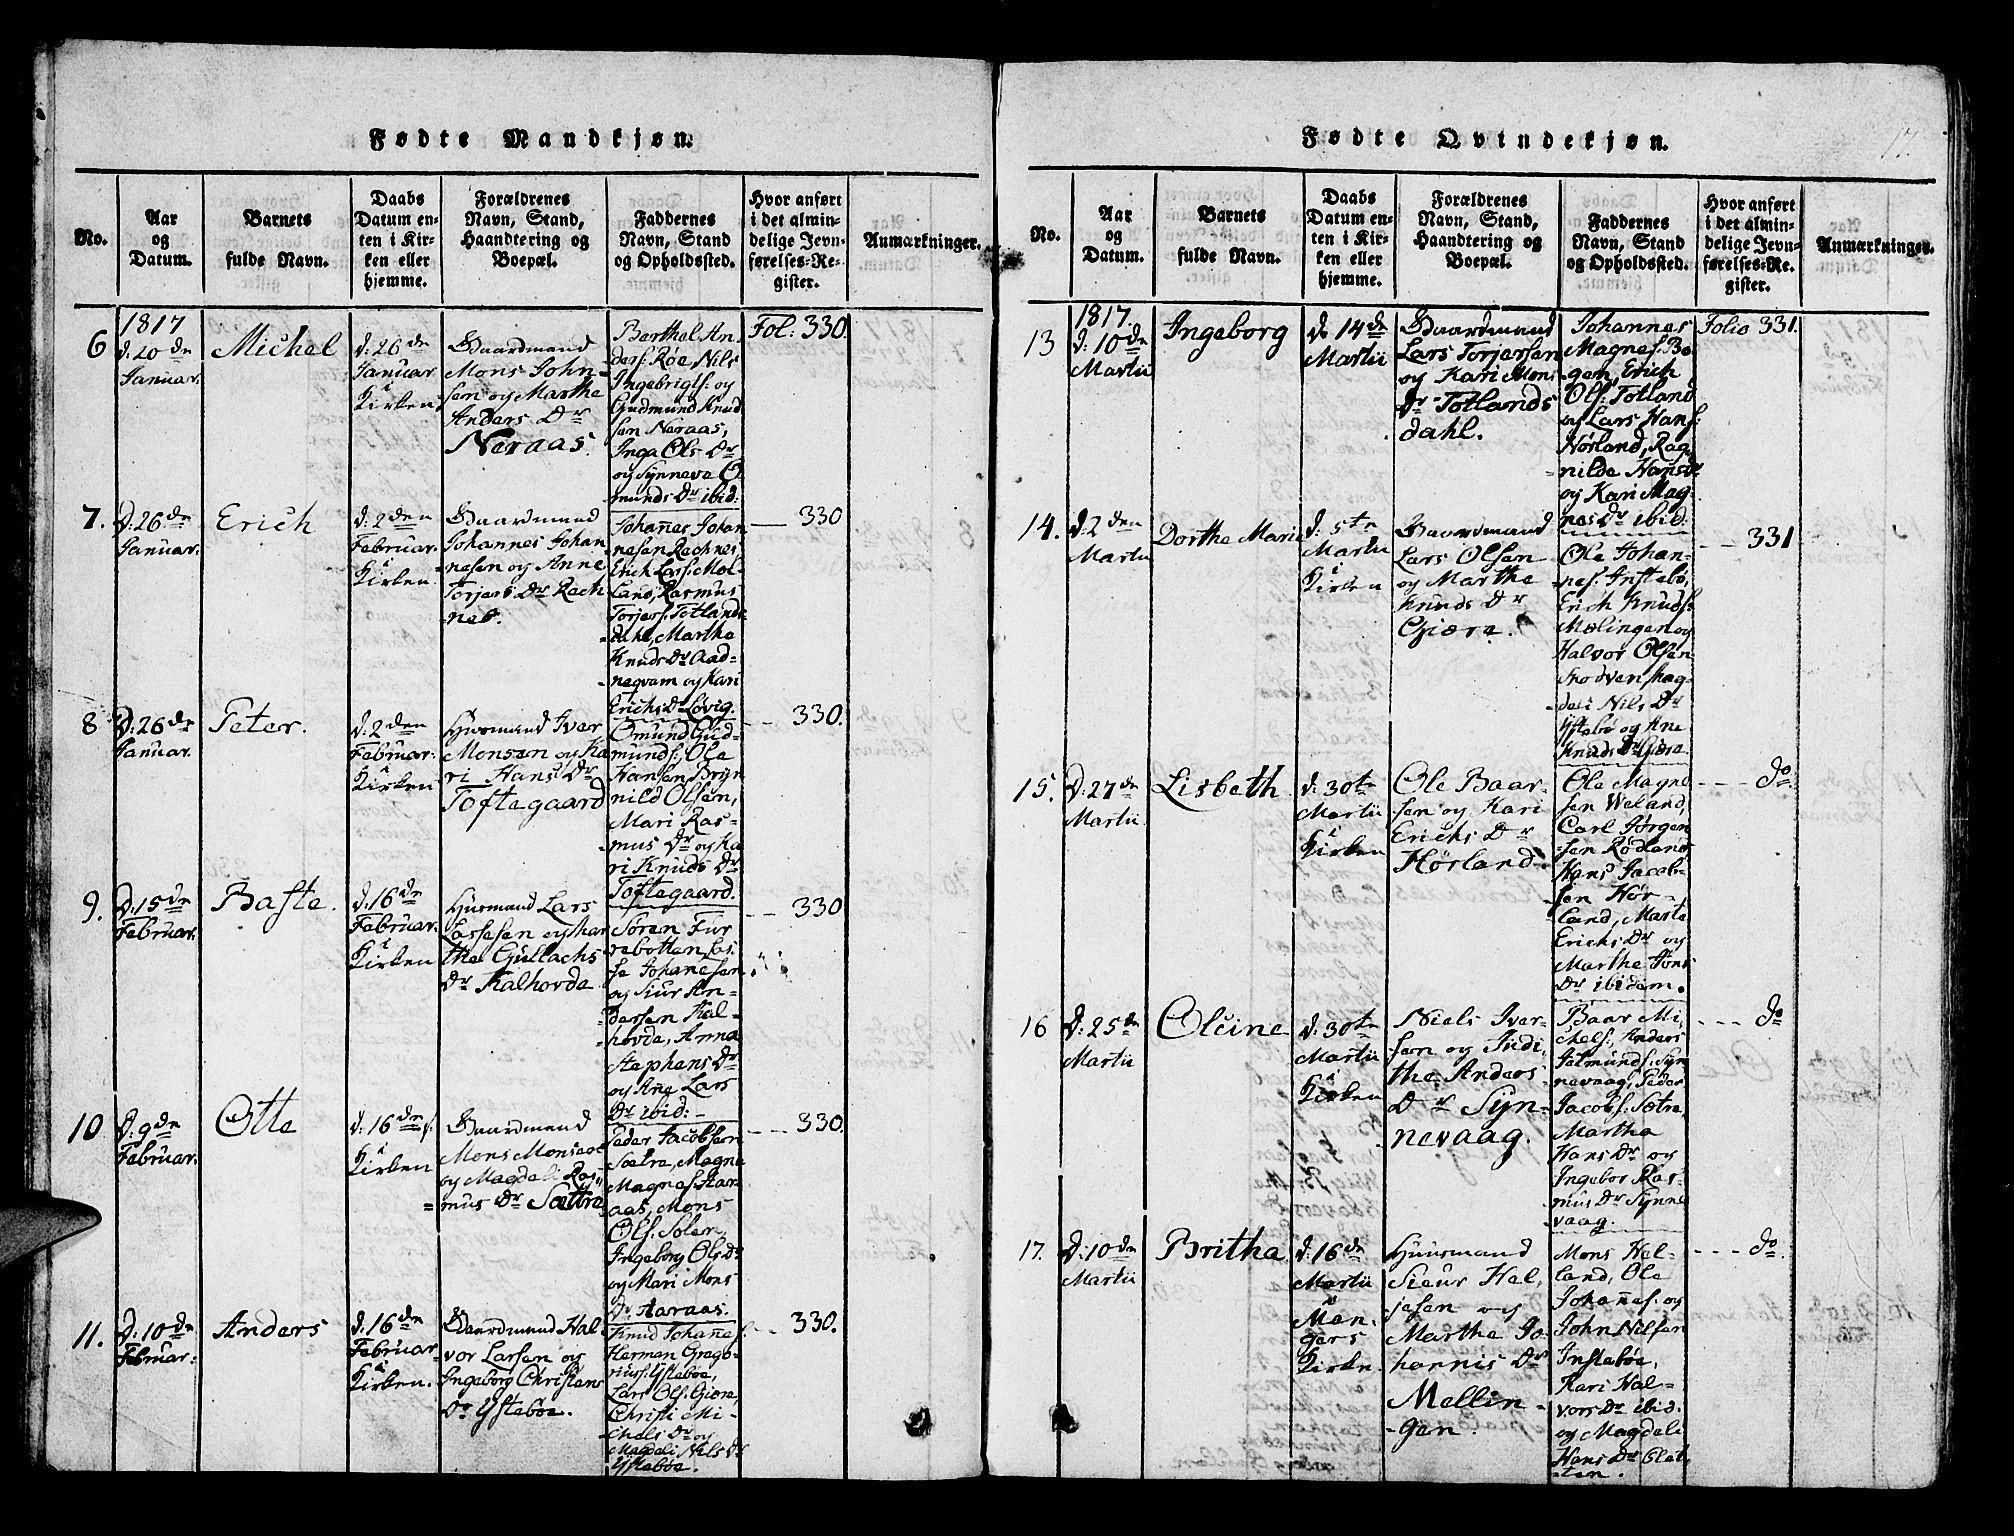 Fødte Mandkjøn.
No.
Aar
og
Datum.
Barnets
fulde Navn.
Daabs
Datum en-
ten i Kir-
ken eller
hjemme.
Forældrenes
Navn, Stand,
Haandtering og
Boepæl.
Faddernes
Navn, Stand
og Opholdssted.
Hvor anført
i det almin-
delige Jevn-
førelses-Re-
gister.
Anmærkninger.
6
1817
d: 20de
Januar.
Michel
d: 26de
Januar
i
Kirken
Gaardmand
Mons John-
sen og Marthe
Anders Dr
Neraas.
Berthel An-
ders: Røe, Nils
Ingebrigts: og
Gudmund Knud
sen Neraas,
Inga Ols Dr
og Synneva O
munds Dr ibid:
Fol: 330.
7.
D: 26de
Januar.
Erich
d: 2den
Februar.
i
Kirken.
Gaardmand
Johannes Johan-
nesen og Anne
Torjers Dr Rech
nes.
Johanes Johan-
nesen Rechnes,
Erich Lars: Mol-
land, Rasmus
Torjers: Totlands-
dahl, Martha
Knuds Dr Aad-
neqvam og Kari
Erichs Dr Løvig.
330
8
D: 26de
Januar.
Peter.
d: 2den
Februar.
i
Kirken
Huusmand Iver
Monsen og Ka
ri Hans Dr
Toftegaard
Omund Gud-
munds: Ole
Hansen Bryn
nild Olsen,
Mari Ras-
mus Dr og Ka
ri Knuds Dr
Toftegaard.
330.
9.
D: 15de
Februar.
Baste.
d: 16de
Februar.
i
Kirken
Husmand Lars
Lassesen og Mar
the Gullachs
Dr Kalhovde.
Søren Fur
rebotten, Las-
se Johanesen
og Siur An-
dersen Kal-
hovde, Anna
Stephens Dr
og Ane Lars
Dr ibid:
330
10
D: 9de
Februar.
Otte
d: 16de
i
Kirken
Gaardmand
Mons Monsen
og Magdeli Ras
mus Dr Sættre
Peder Jacobsen
Sætre, Magne
Magnes: Aar-
aas, Mons
Ols: Soler,
Ingeborg Ols Dr
og Mari Mons
Dr Aaraas.
330.
11.
D: 10de
Februar:
Anders
d: 16de
Februar
i
Kirken.
Gaardmand Hal
vor Larsen og
Ingeborg Christens
Dr Ystebøe.
Knud Johanes:
Herman Grego-
rius: Ystebøe,
Lars Ols: Giære,
Christi Mi-
chels Dr og
Magdeli Nils Dr
Ystebøe.
330.
Fødte Qvindekjøn.
17.
No.
Aar
og
Datum.
Barnets
fulde Navn.
Daabs
Datum en-
ten i Kir-
ken eller
hjemme.
Forældrenes
Navn, Stand,
Haandtering og
Boepæl.
Faddernes
Navn, Stand
og Opholdssted.
Hvor anført
i det almin-
delige Jevn-
førelses-Re-
gister.
Anmærkninger.
13
1817.
d: 10de
Martii
Ingeborg
d: 14de
Martii
Gaardmand
Lars Torjersen
og Kari Mons
Dr Totlands
dahl.
Johannes
Magnes: Bø-
gen, Erich
Ols: Totland
og Lars Hans:
Nørland, Rag-
nilde Hans Dr
og Kari Mag-
nes Dr ibid:
Folio 331.
14.
d. 2den
Martii
Dorthe Marie
d. 5te
Martii
i
Kirken
Gaardmand
Lars Olsen
og Marthe
Knuds Dr
Giære.
Ole Johan-
nes: Instebø,
Erich Knuds:
Mælingen og
Halvor Olsen
Skodven, Mag-
deli Nils Dr
Ystebø og Ane
Knuds Dr Giære
331
15.
D: 27de
Martii.
Lisbeth
d: 30te
Martii
i
Kirken
Ole Baar-
sen og Kari
Erichs Dr
Hørland.
Ole Magne
sen Weland,
Carl Jørgen
sen Rødland
Hans Jacob-
sen Hør-
land, Marte
Erichs Dr og
Marthe Jons
Dr ibidem.
do
16
D: 25de
Martii
Oleine
d: 30te
Martii
i
Kirken
Niels Iver-
sen og Indi-
the Anders
Dr Syn-
nevaag.
Baar Mi-
chels:, Anders
Jetmunds: Syn
nevaag, Peder
Jacobs: Sætre,
Martha
Hans Dr og
Ingebor Ras-
mus Dr Synne
vaag.
do
17.
D: 10de
Martii
Britha
d: 16de
Martii
i
Man-
gers
Kirke.
Huusmand
Sieur Hel-
jesen og
Marthe Jo-
hannis Dr
Mellin-
gen.
Mons Hel-
land, Ole
Johanes: og
John Nilsen
Instebøe,
Kari Hal-
vors Dr ibid.
og Magdeli
Hans Dr Slet-
ten.
do.